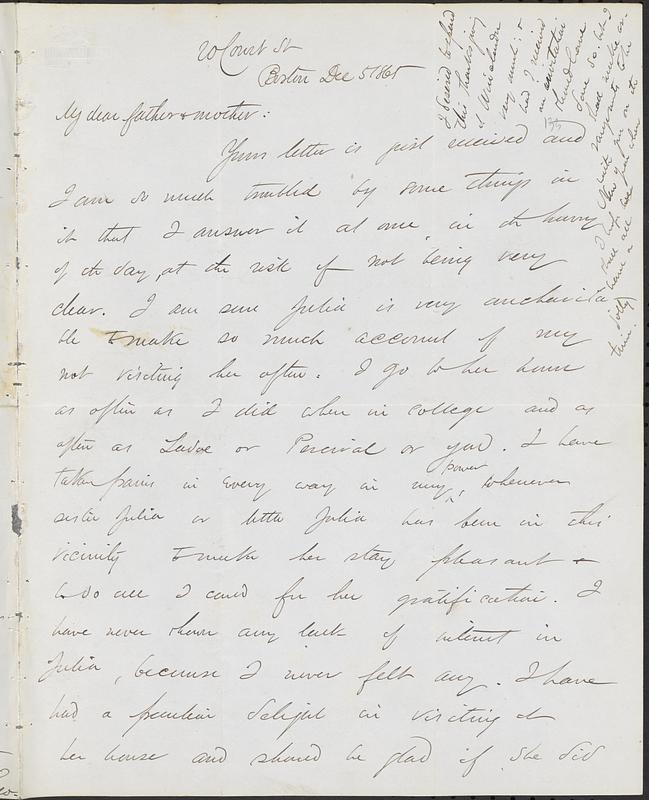 20 Court St
Boston Dec 5 1865
My dear father & mother:
Yours letter is just received and
I am so much troubled by some things in
it that I answer it at once, in the hurry
of the day, at the risk of not being very
clear. I am sure Julia is very uncharita
ble to make so much account of my
not visiting her often. I go to her house
as often as I did when in college and as
often as or Percival or you. I have
taken pains in every way in my power, whenever
sister Julia or little Julia has been in this
vicinity to make her stay pleasant &
to do all I could for her gratification. I
have never shown any lack of interest in
Julia, because I never felt any. I have
had a peculiar delight in visiting at
her house and should be glad if she did
I desired to spend
this thanksgiving
at Winchendon
very much; &
had I received
an invitation
should have
done so. but I
shall make ar-
rangements to be
with you on the
New Year when
I hope we shall
all have a
jolly
time.